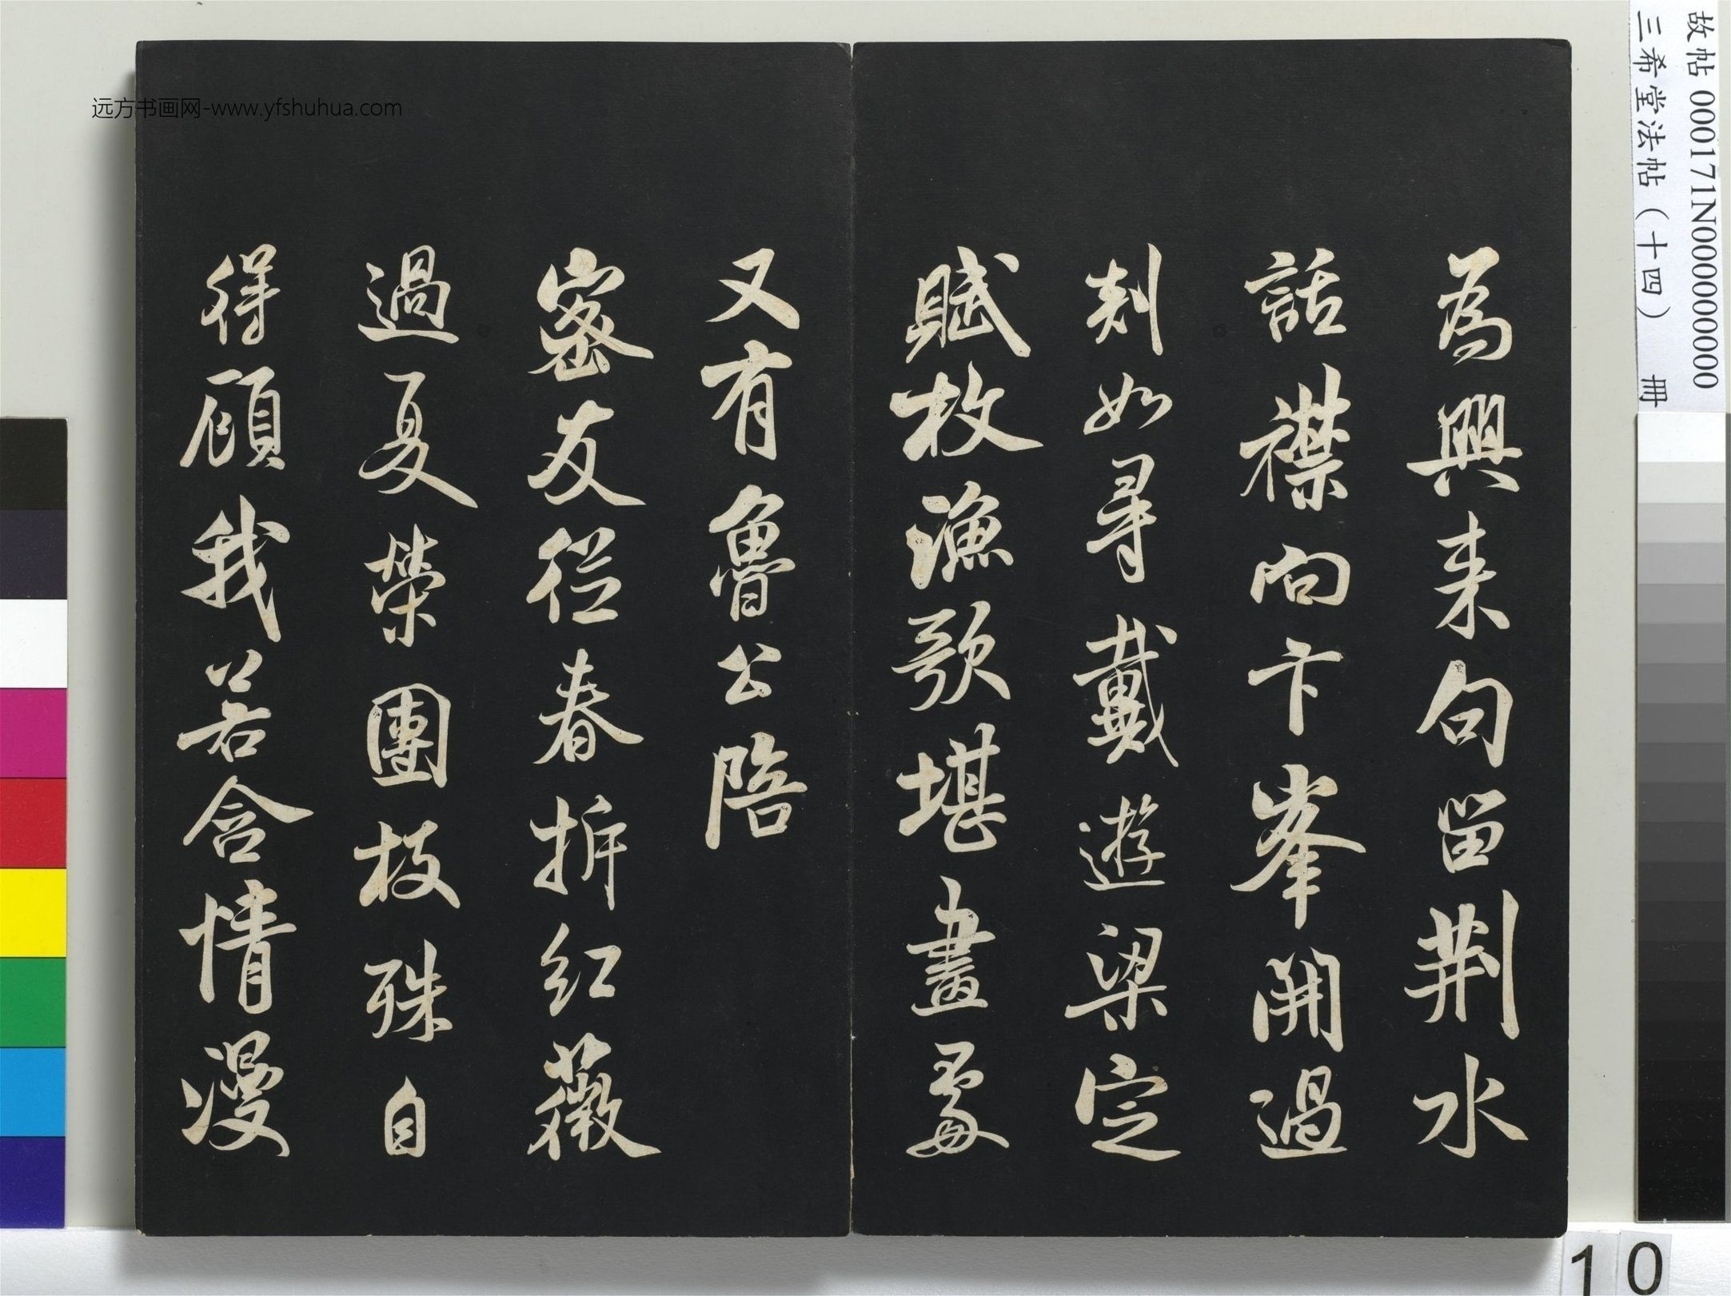 為興来句留荆水
話襟向卞峯開過
剡如尋戴遊梁定
賦枚漁歌堪畫處
又有魯公陪
密友從春拆紅薇
過夏榮團枝殊自
得顧我若含情漫
远方书画网-www.yfshuhua.com
故帖 000171N000000000
三希堂法帖（十四） 冊
10